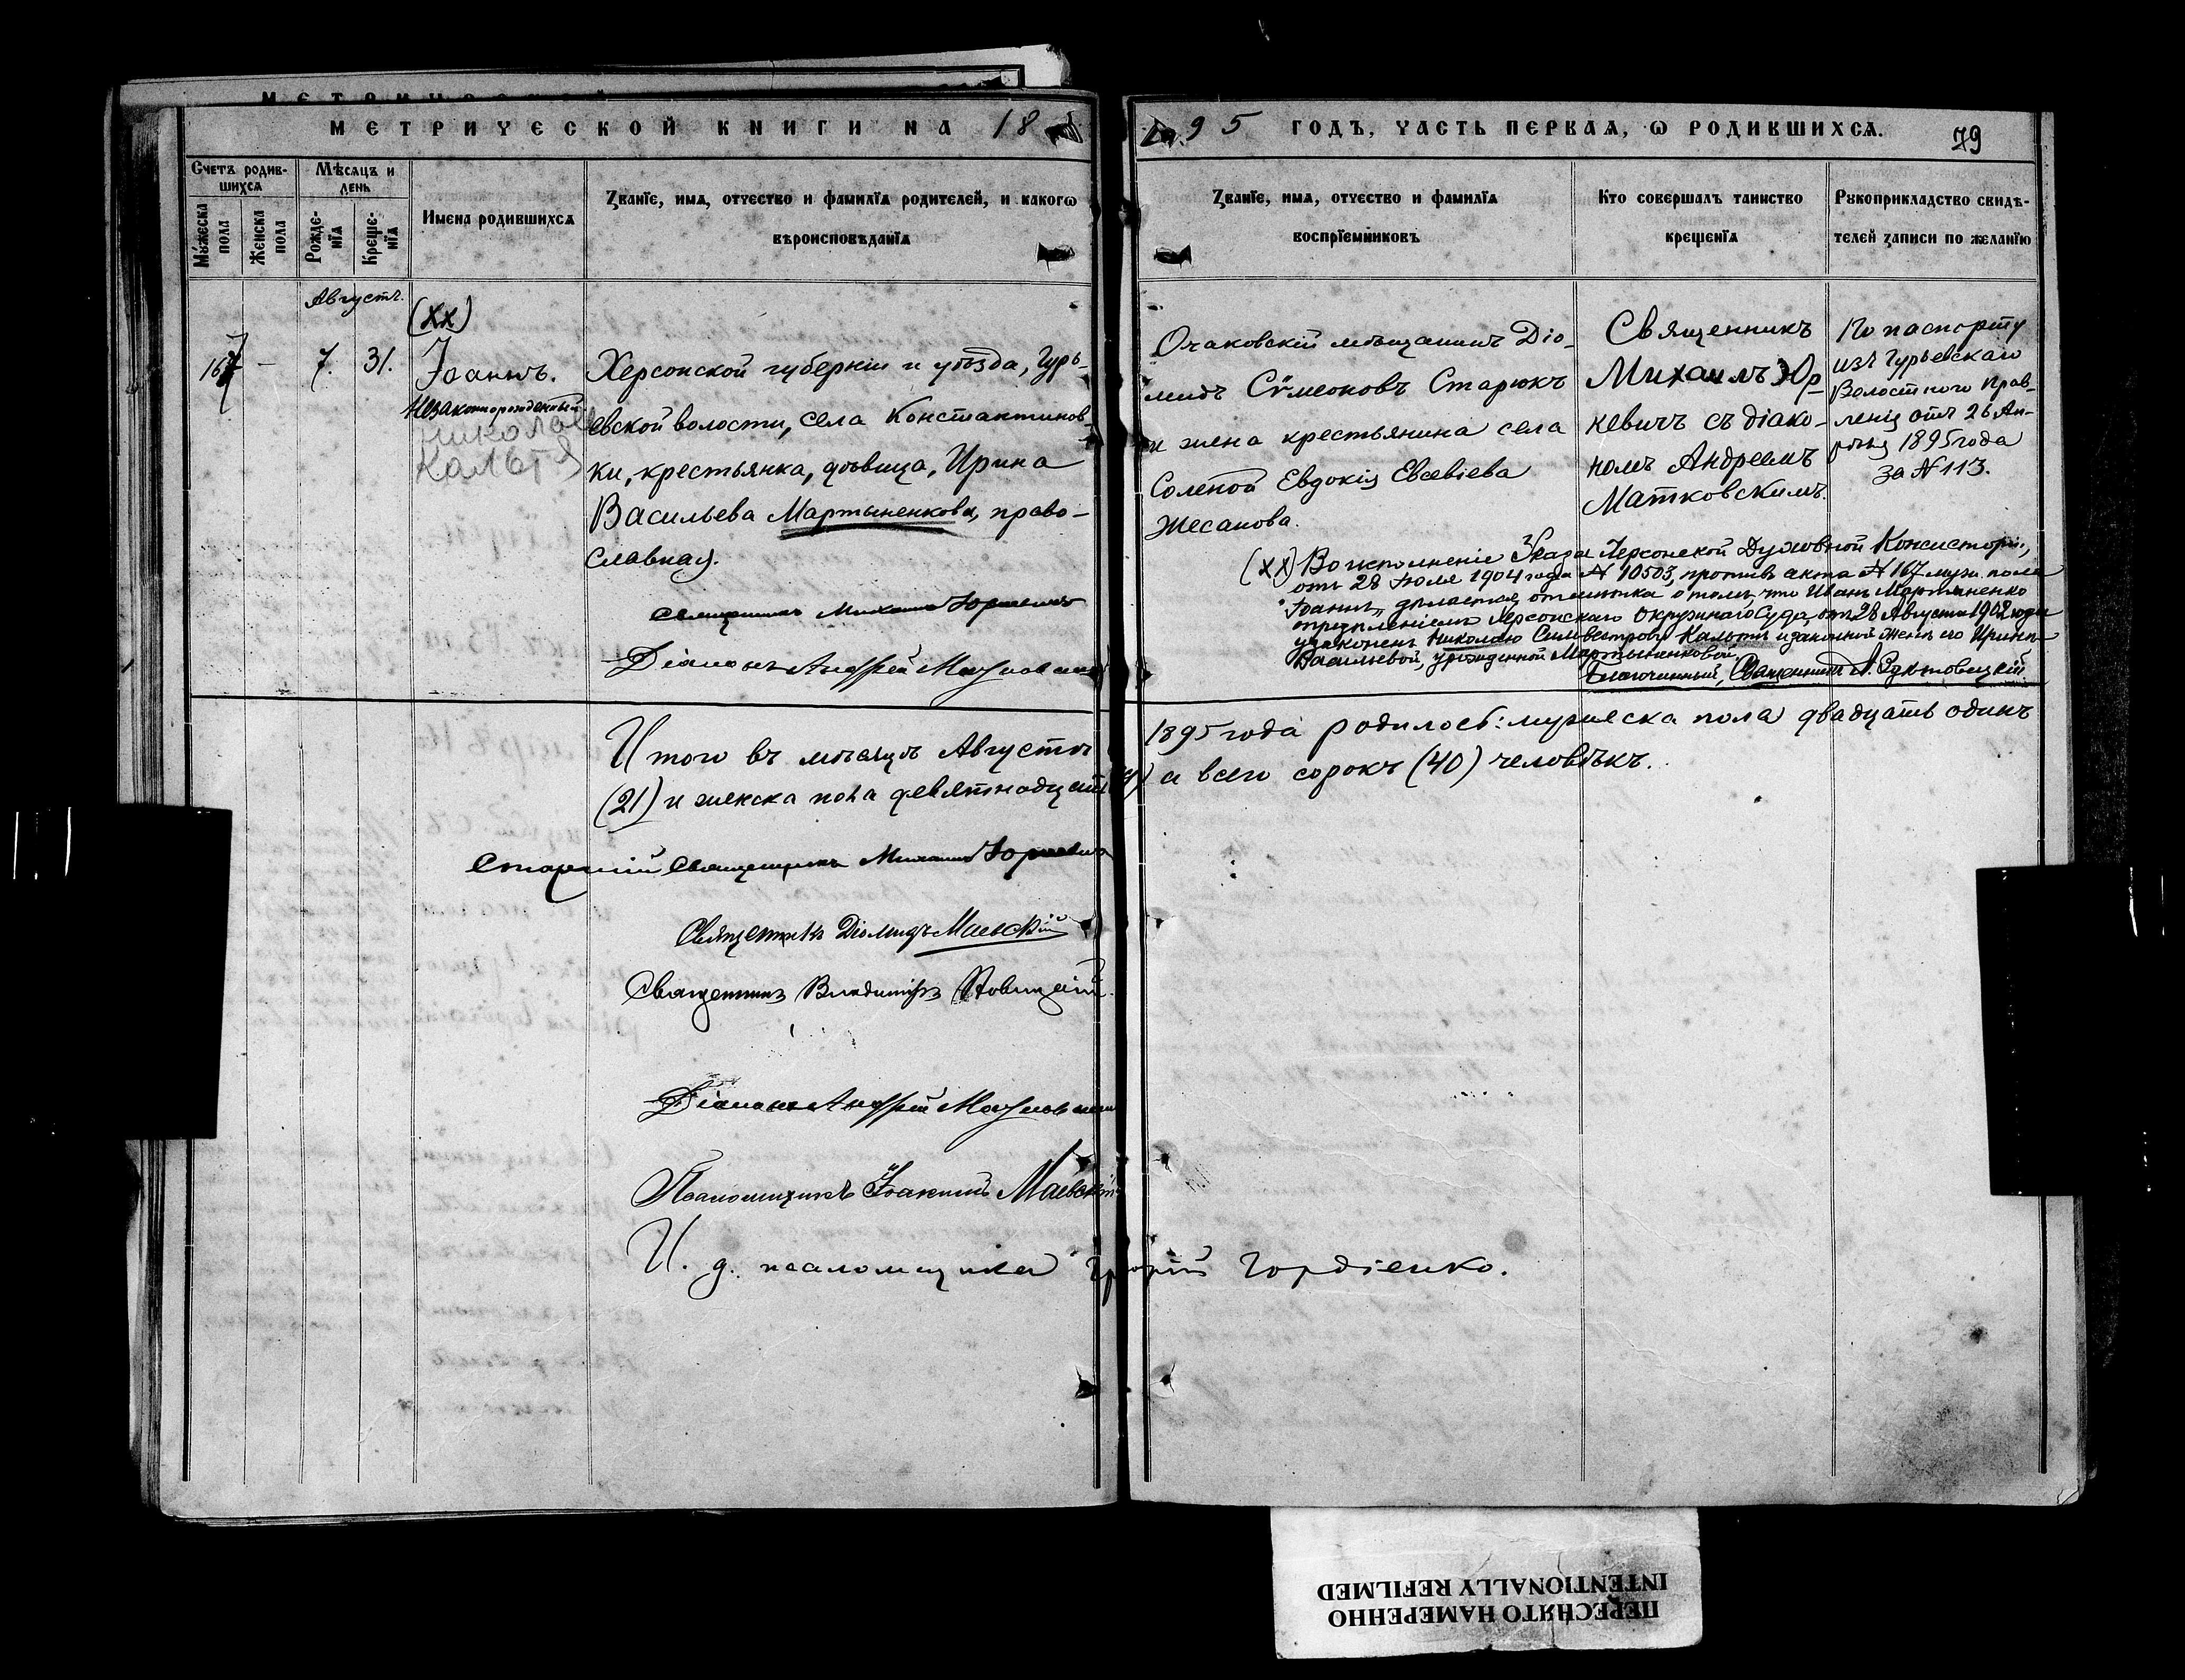 МЕТРИЧЕСКОЙ КНИГИ НА 18
95 ГОДЪ, ЧАСТЬ ПЕРВАѦ, Ѡ РОДИВШИХСѦ.
79
Счетъ родив-
шихсѧ
Мꙋжеска
пола
Женска
пола
Мѣсѧцъ и
день
Рожде-
нїѧ
Креще-
нїѧ
Имена родившихсѧ
Званїе, имѧ, отчество и фамилїѧ родителей, и какогѡ
вѣроисповѣданїѧ
Званїе, имѧ, отчество и фамилїѧ
воспрїемниковъ
Кто совершалъ таинство
крещенїѧ
Рꙋкоприкладство свидѣ-
телей записи по желанїю
Августъ.
167
-
7.
31.
(хх)
Іоаннъ.
Незаконнорожденный
Николае
Кальтя
Херсонской губерніи и уѣзда, Гурь-
евской волости, села Константинов-
ки, крестьянка, дѣвица, Ирина
Васильева Мартыненкова, право-
славная.
Священникъ Михаилъ Юркевичъ
Діаконъ Андрей Матковскій
Очаковскій мѣщанинъ Діо-
мидъ Сѵмеоновъ Старюкъ
и жена крестьянина села
Соленой Евдокія Евсевіева
Жесанова.
Священникъ
Михаилъ Юр-
кевичъ съ діако-
номъ Андреемъ
Матковскимъ.
По паспорту
изъ Гурьевскаго
Волостного Прав-
ленія отъ 26 Ап-
рѣля 1895 года
за № 113.
(хх) Во исполненіе Указа Херсонской Духовной Консисторіи,
отъ 28 Іюля 1904 года № 10503, противъ акта № 167 муж. пола
"Іоаннъ" дѣлается отмѣтка о томъ, что Иванъ Мартыненко
опредѣленіемъ Херсонскаго Окружнаго Суда, отъ 28 Августа 1902 года
узаконенъ Николаю Сильвестрову Кальтѣ и законной женѣ его Иринѣ
Васильевой, урожденной Мартыненковой.
Благочинный, Священникъ А.
Итого въ мѣсяцѣ Августѣ
1895 года родилось: мужеска пола двадцать одинъ
(21) и женска пола девятнадцать
а всего сорокъ (40) человѣкъ.
Старшій Священникъ Михаилъ Юркевичъ
Священникъ Діомидъ Маевскій
Священникъ Владиміръ Новицкій.
Діаконъ Андрей Матковскій
Псаломщикъ Іоакимъ Маевскій
И. д. псаломщика Григорій Гордіенко.
ПЕРЕСНЯТО НАМЕРЕННО
INTENTIONALLY REFILMED